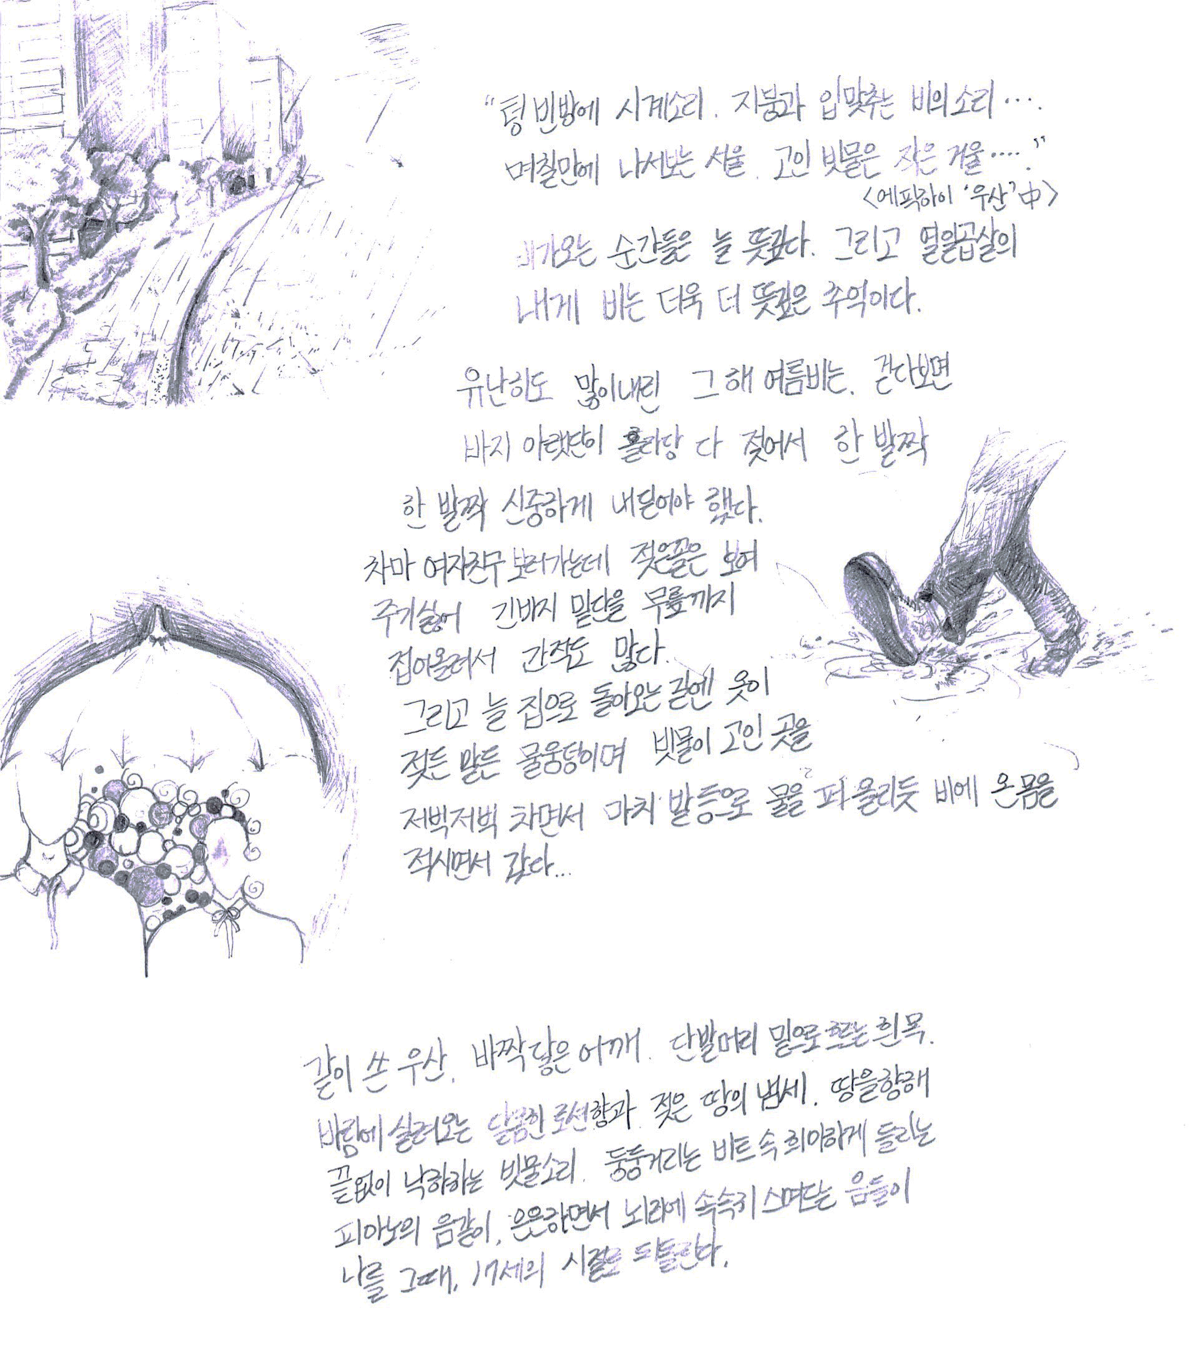 "텅 빈방에 시계소리. 지붕과 입맞추는 비의 소리….
며칠만에 나서보는 서울. 고인 빗물은 작은 거울…."
<에픽하이 '우산' 中>
비가오는 순간들은 늘 뜻깊다. 그리고 열일곱살의
내게 비는 더욱 더 뜻깊은 추억이다.
유난히도 많이내린 그 해 여름비는, 걷다보면
바지 아랫단이 홀라당 다 젖어서 한 발짝
한 발짝 신중하게 내딛어야 했다.
차마 여자친구 보러가는데 젖은꼴은 보여
주기싫어 긴바지 밑단을 무릎까지
접어올려서 간적도 많다.
그리고 늘 집으로 돌아오는길엔 옷이
젖든 말든 물웅덩이며 빗물이 고인 곳을
저벅저벅 차면서 마치 발등으로 물을 퍼 올리듯 비에 온몸을
적시면서 갔다...
같이 쓴 우산. 바짝 닿은 어깨. 단발머리 밑으로 흐르는 흰 목.
바람에 실려오는 달콤한 로션향과 젖은 땅의 냄세. 땅을향해
끝없이 낙하하는 빗물소리. 둥둥거리는 비트 속 희미하게 들리는
피아노의 음같이, 은은하면서 뇌리에 속속히 스며드는 음들이
나를 그때, 17세의 시절로 되돌린다.